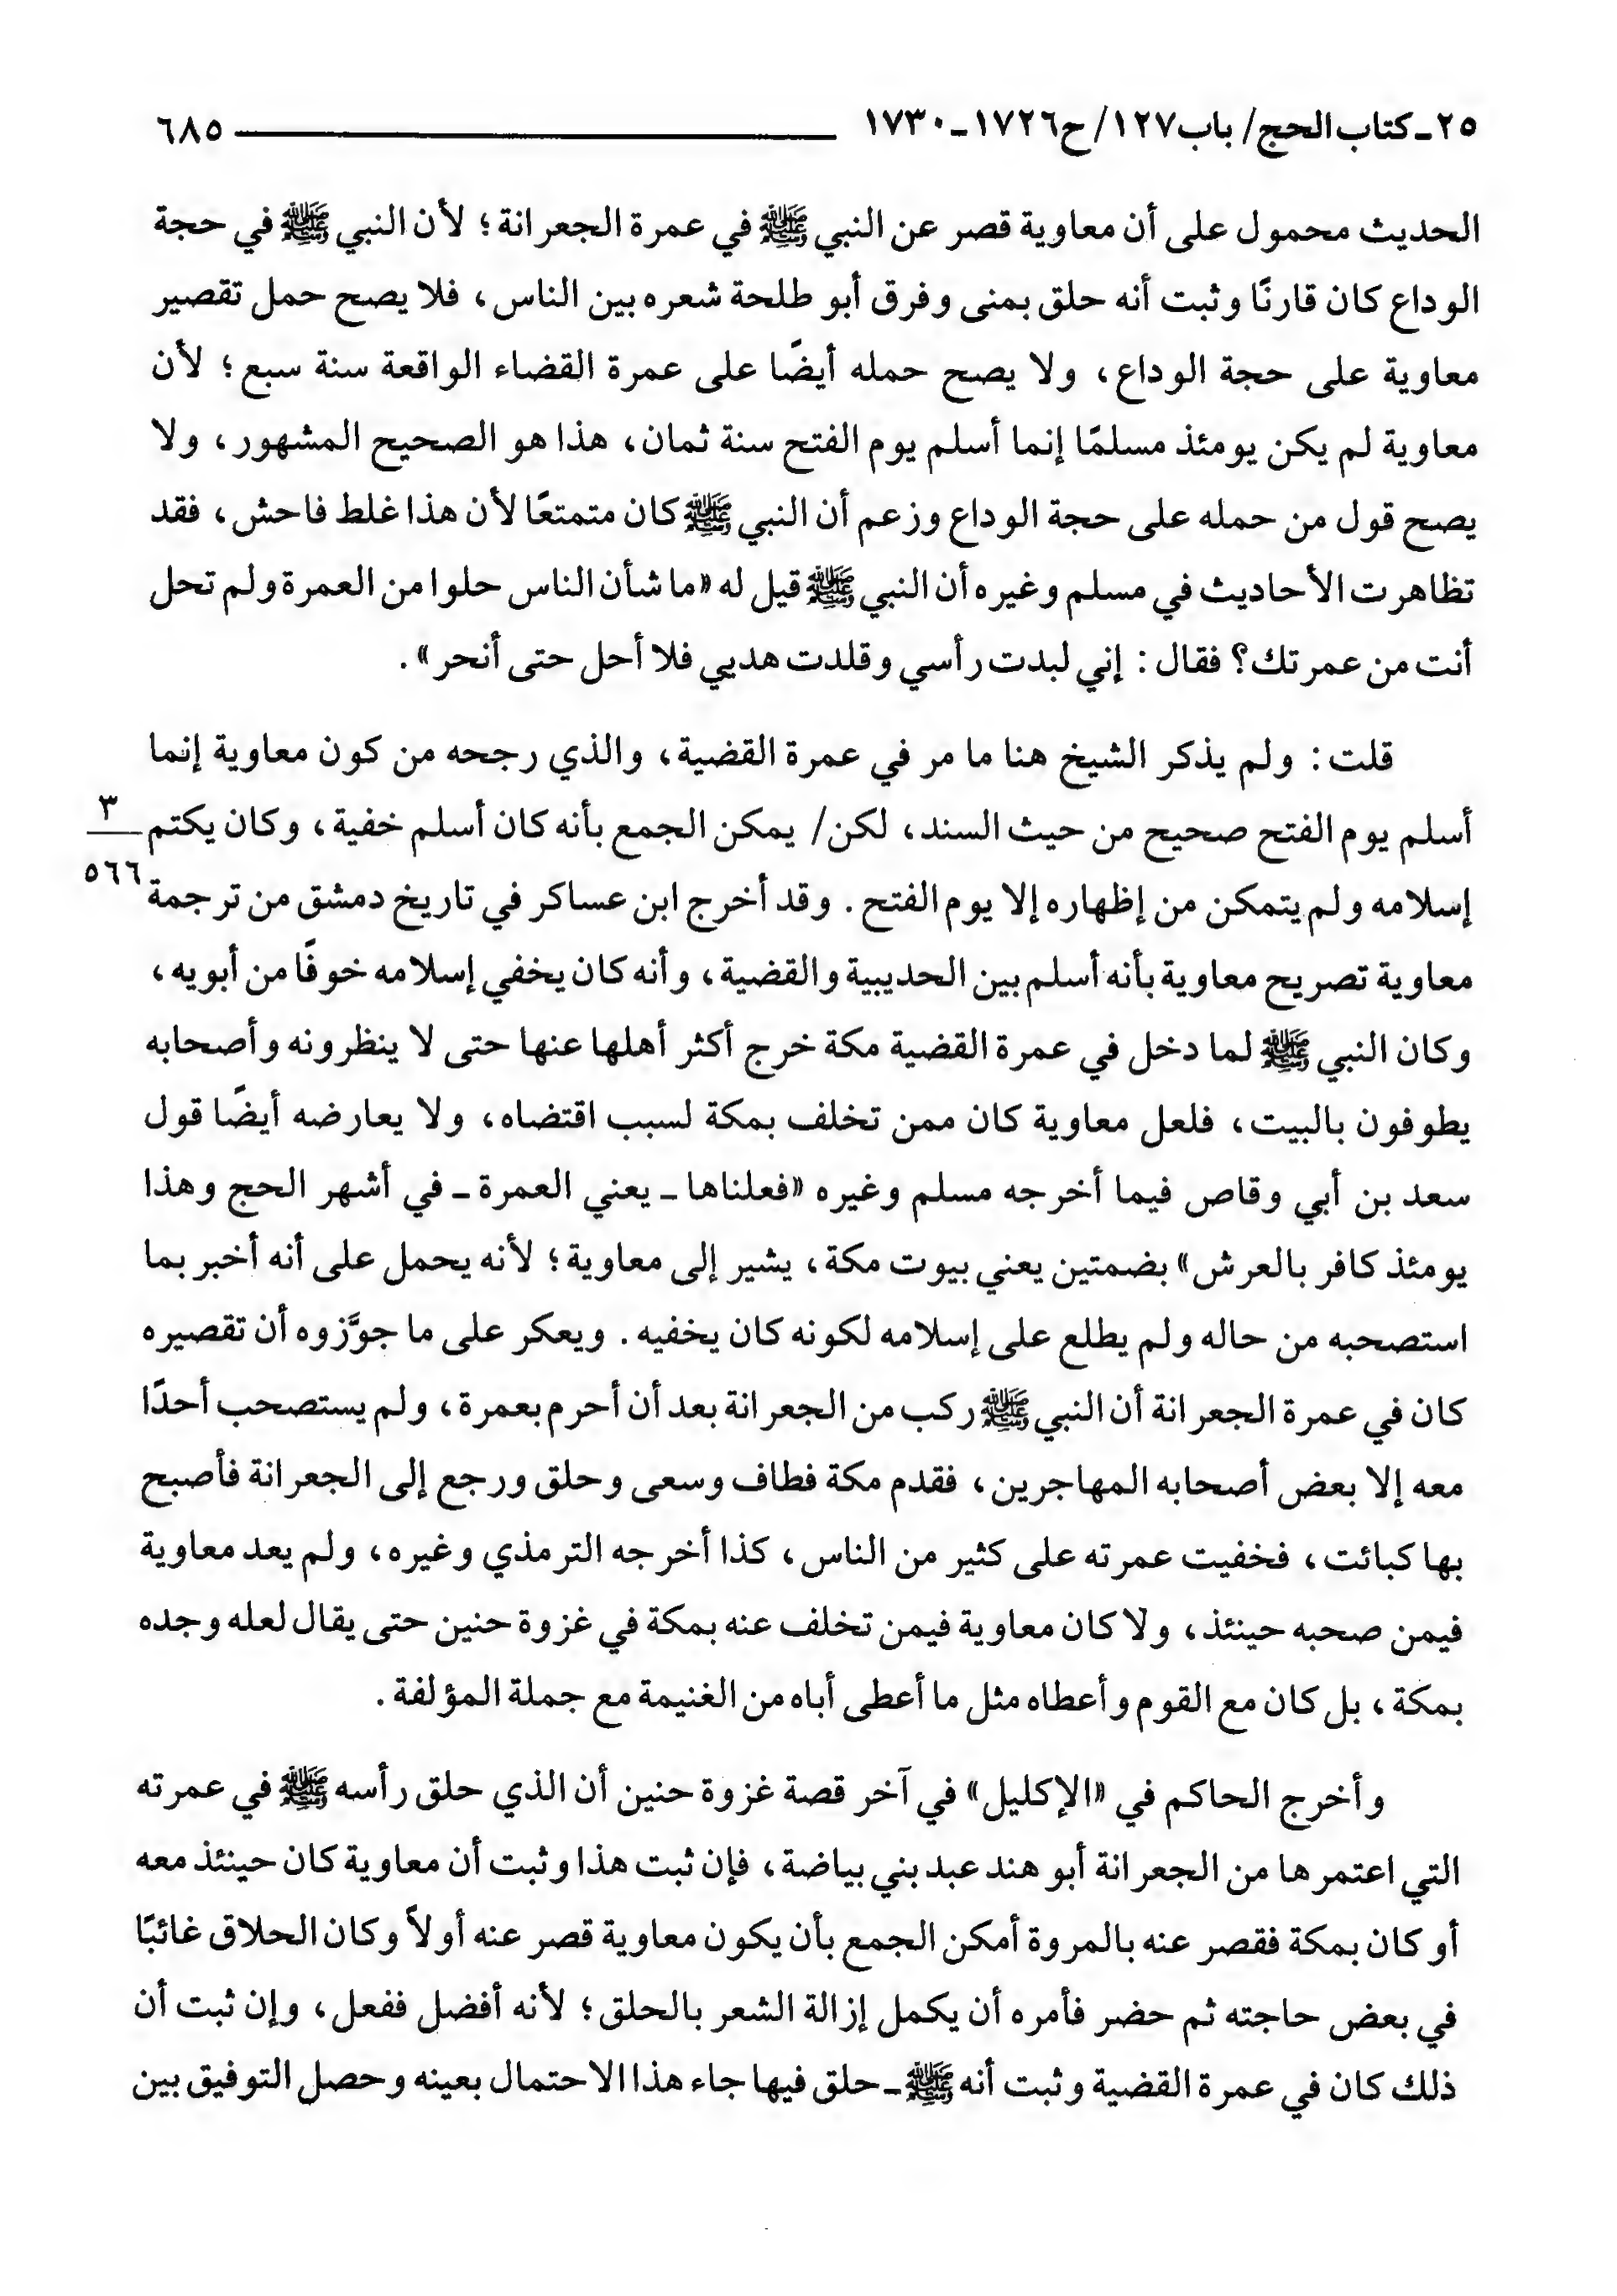 ٢٥ـ كتاب الحج/ باب ١٢٧/ ح ١٧٢٦ـ ١٧٣٠ ٦٨٥
الحديث محمول على أن معاوية قصر عن النبي ﷺ في عمرة الجعرانة؛ لأن النبي ﷺ في حجة
الوداع كان قارنًا وثبت أنه حلق بمنى وفرق أبو طلحة شعره بين الناس، فلا يصح حمل تقصير
معاوية على حجة الوداع، ولا يصح حمله أيضًا على عمرة القضاء الواقعة سنة سبع؛ لأن
معاوية لم يكن يومئذ مسلمًا إنما أسلم يوم الفتح سنة ثمان، هذا هو الصحيح المشهور، ولا
يصح قول من حمله على حجة الوداع وزعم أن النبي ﷺ كان متمتعًا لأن هذا غلط فاحش، فقد
تظاهرت الأحاديث في مسلم وغيره أن النبي ﷺ قيل له «ما شأن الناس حلوا من العمرة ولم تحل
أنت من عمرتك؟ فقال: إني لبدت رأسي وقلدت هديي فلا أحل حتى أنحر».
قلت: ولم يذكر الشيخ هنا ما مر في عمرة القضية، والذي رجحه من كون معاوية إنما
أسلم يوم الفتح صحيح من حيث السند، لكن/ يمكن الجمع بأنه كان أسلم خفية، وكان يكتم
٣
٥٦٦
إسلامه ولم يتمكن من إظهاره إلا يوم الفتح. وقد أخرج ابن عساكر في تاريخ دمشق من ترجمة
معاوية تصريح معاوية بأنه أسلم بين الحديبية والقضية، وأنه كان يخفي إسلامه خوفًا من أبويه،
وكان النبي ﷺ لما دخل في عمرة القضية مكة خرج أكثر أهلها عنها حتى لا ينظرونه وأصحابه
يطوفون بالبيت، فلعل معاوية كان ممن تخلف بمكة لسبب اقتضاه، ولا يعارضه أيضًا قول
سعد بن أبي وقاص فيما أخرجه مسلم وغيره «فعلناها ـ يعني العمرة ـ في أشهر الحج وهذا
يومئذ كافر بالعرش» بضمتين يعني بيوت مكة، يشير إلى معاوية؛ لأنه يحمل على أنه أخبر بما
استصحبه من حاله ولم يطلع على إسلامه لكونه كان يخفيه. ويعكر على ما جوَّزوه أن تقصيره
كان في عمرة الجعرانة أن النبي ﷺ ركب من الجعرانة بعد أن أحرم بعمرة، ولم يستصحب أحدًا
معه إلا بعض أصحابه المهاجرين، فقدم مكة فطاف وسعى وحلق ورجع إلى الجعرانة فأصبح
بها كبائت، فخفيت عمرته على كثير من الناس، كذا أخرجه الترمذي وغيره، ولم يعد معاوية
فيمن صحبه حينئذ، ولا كان معاوية فيمن تخلف عنه بمكة في غزوة حنين حتى يقال لعله وجده
بمكة، بل كان مع القوم وأعطاه مثل ما أعطى أباه من الغنيمة مع جملة المؤلفة.
وأخرج الحاكم في «الإكليل» في آخر قصة غزوة حنين أن الذي حلق رأسه ﷺ في عمرته
التي اعتمرها من الجعرانة أبو هند عبد بني بياضة، فإن ثبت هذا وثبت أن معاوية كان حينئذ معه
أو كان بمكة فقصر عنه بالمروة أمكن الجمع بأن يكون معاوية قصر عنه أولاً وكان الحلاق غائبًا
في بعض حاجته ثم حضر فأمره أن يكمل إزالة الشعر بالحلق؛ لأنه أفضل ففعل، وإن ثبت أن
ذلك كان في عمرة القضية وثبت أنه ﷺ ـ حلق فيها جاء هذا الاحتمال بعينه وحصل التوفيق بين